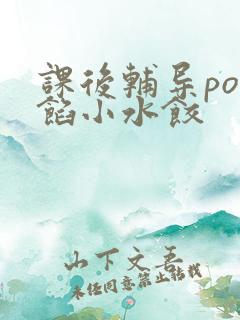 課後輔导po
餡小水餃
山下文吾
未经同意禁止转载